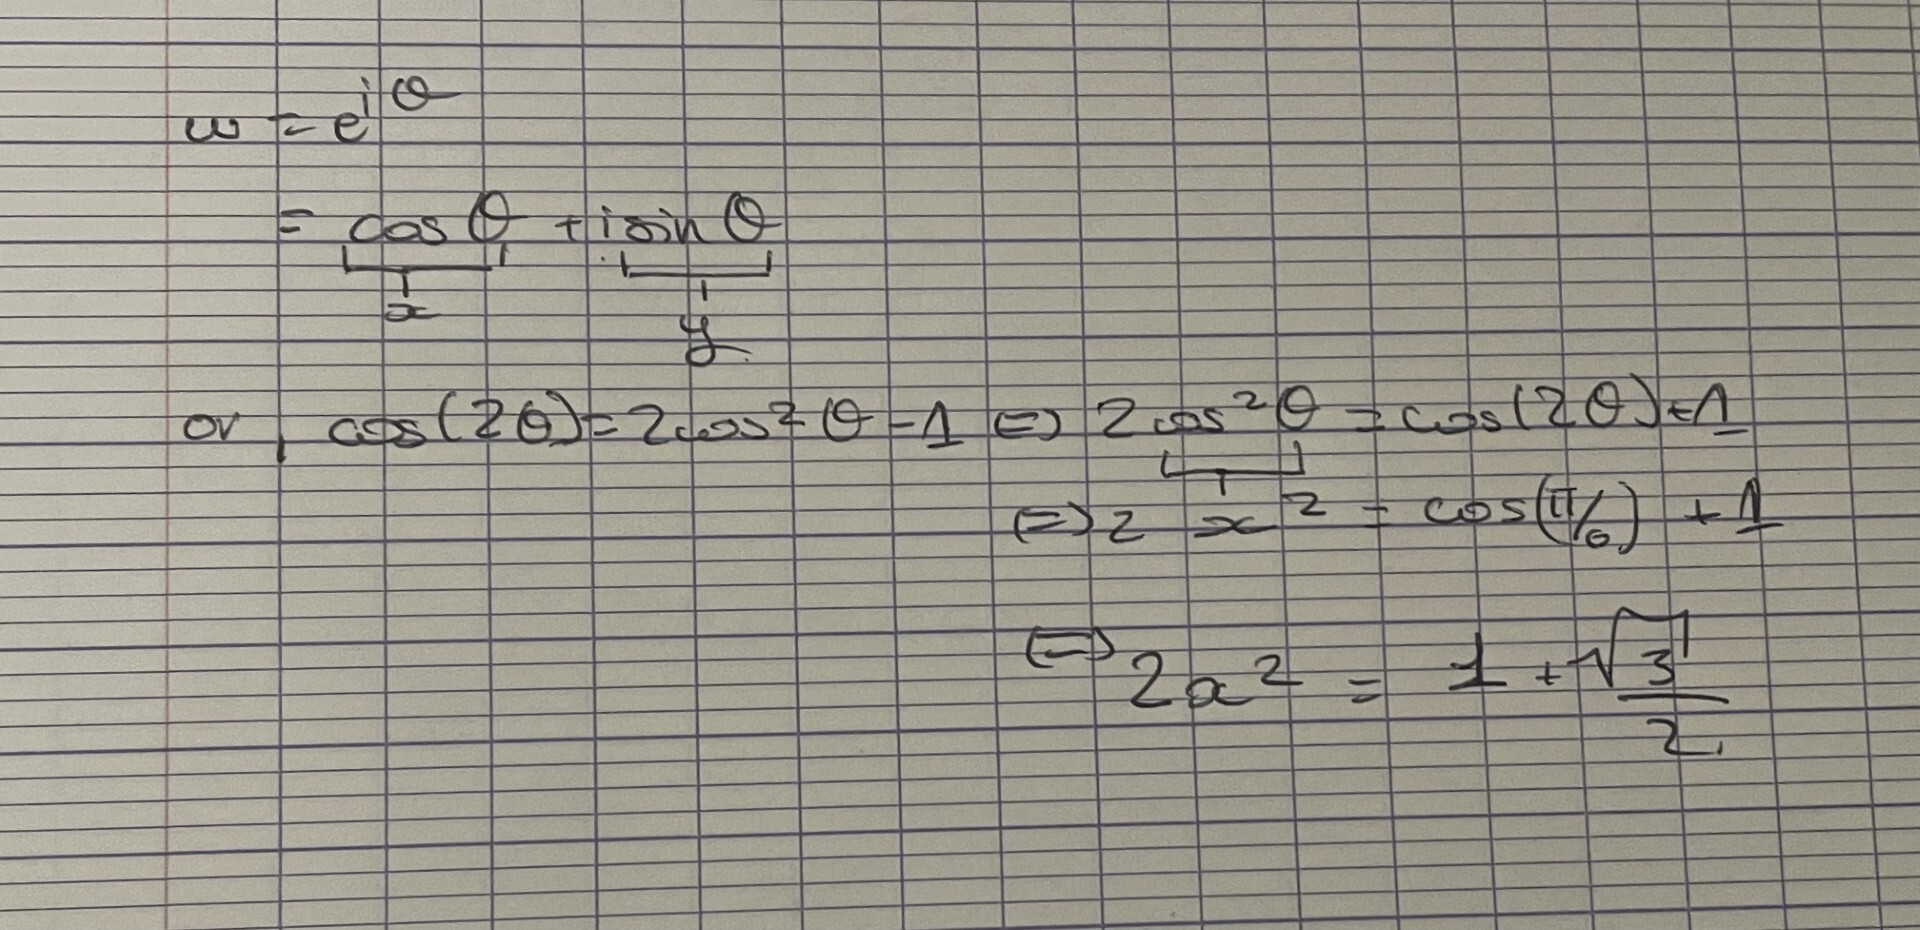 ω = e^{iθ}
= cos θ + i sin θ
x
y
or, cos(2θ) = 2cos²θ - 1 ⇔ 2cos²θ = cos(2θ) + 1
⇔ 2 x² = cos(π/6) + 1
⇔ 2x² = 1 + √3/2